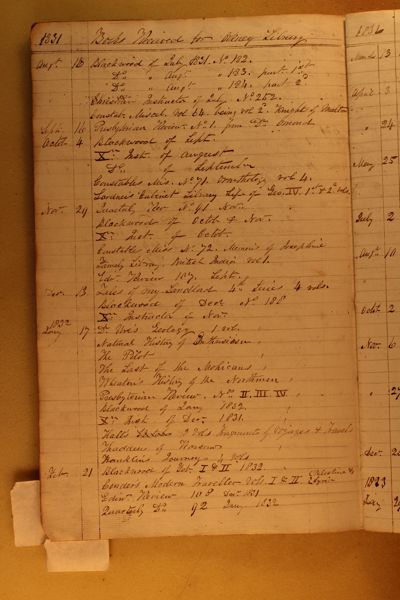 1831 Books Received for Orkney Library
Augt. 16 Blackwood of July 1831. No. 182.
Do. " Augt. " 183. part 1st
Do. " Augt " 184. part 2d
Christian Instructor of July No. 252.
Constab. Miscel. Vol. 64. being vol 2. Knights of Malta
Sept. 16 Presbyterian Review No. 1. from Dr.
Octob. 4 Blackwood of Sept.
Xn. Inst. of August
Do. of September
Constables Mis. No. 71. Ornithology vol. 4.
Lardners Cabinet Library Life of Geo. IV. 1st & 2d vols.
Nov. 29 Quarterly Rev. No. 91 Nov.
Blackwood of Octob & Nov.
Xn. Inst. of Octob.
Constable Misc No. 72. Memoirs of Josephine
Family Library. British India vol 1.
Edin. Review 107. Sept.
Dec. 13 Tales of my Landlord 4th Series 4 vols.
Blackwood of Decr. No. 188
Xn. Instructor of Nov.
1832
Jany. 17 Dr. Ure's Geology 1 vol.
Natural History of Enthusiasm
The Pilot
The Last of the Mohicans
Wheaton's History of the Northmen
Presbyterian Review. Nos. II. III. IV
Blackwood of Jany 1832.
Xn. Inst. of Decr. 1831.
Hall's 3 Vols Fragments of Voyages & Travels
Thaddeus of Warsaw
Franklin's Journey 4 vols
Feb. 21 Blackwood of Feb. I & II 1832.
Conders Modern Traveller Vols. I & II Palestine & Syria
Edinr. Review 108 Decr. 1831
Quarterly Do. 92 Jany 1832
1834
March 13
April 3
" 24
May 25
July 2
Augt. 10
Octob. 2
Nov. 6
" 27
Decr. 2
1833
Jany.